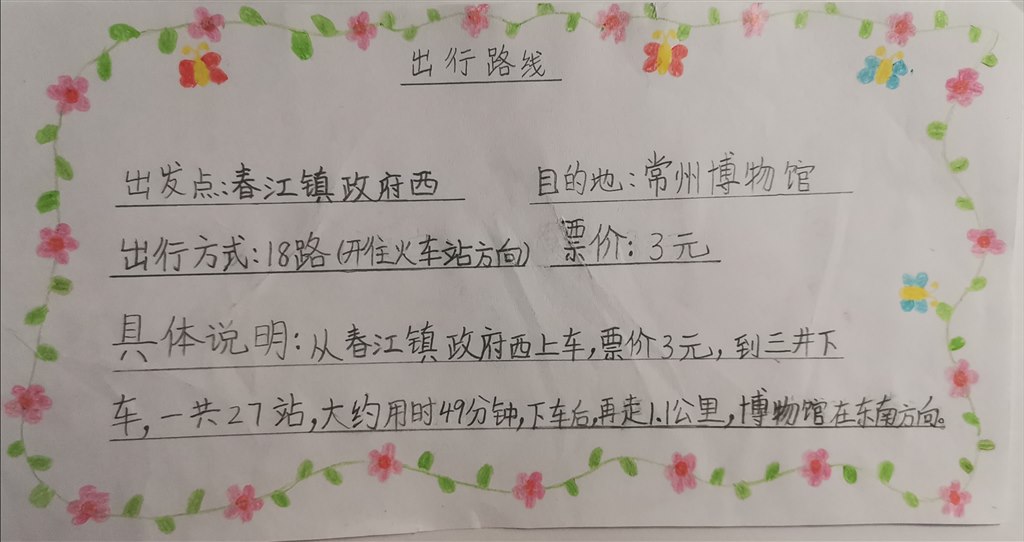 出行路线
出发点:春江镇政府西 目的地:常州博物馆
出行方式:18路(开往火车站方向) 票价:3元
具体说明:从春江镇政府西上车,票价3元,到三井下
车,一共27站,大约用时49分钟,下车后,再走1.1公里,博物馆在东南方向。